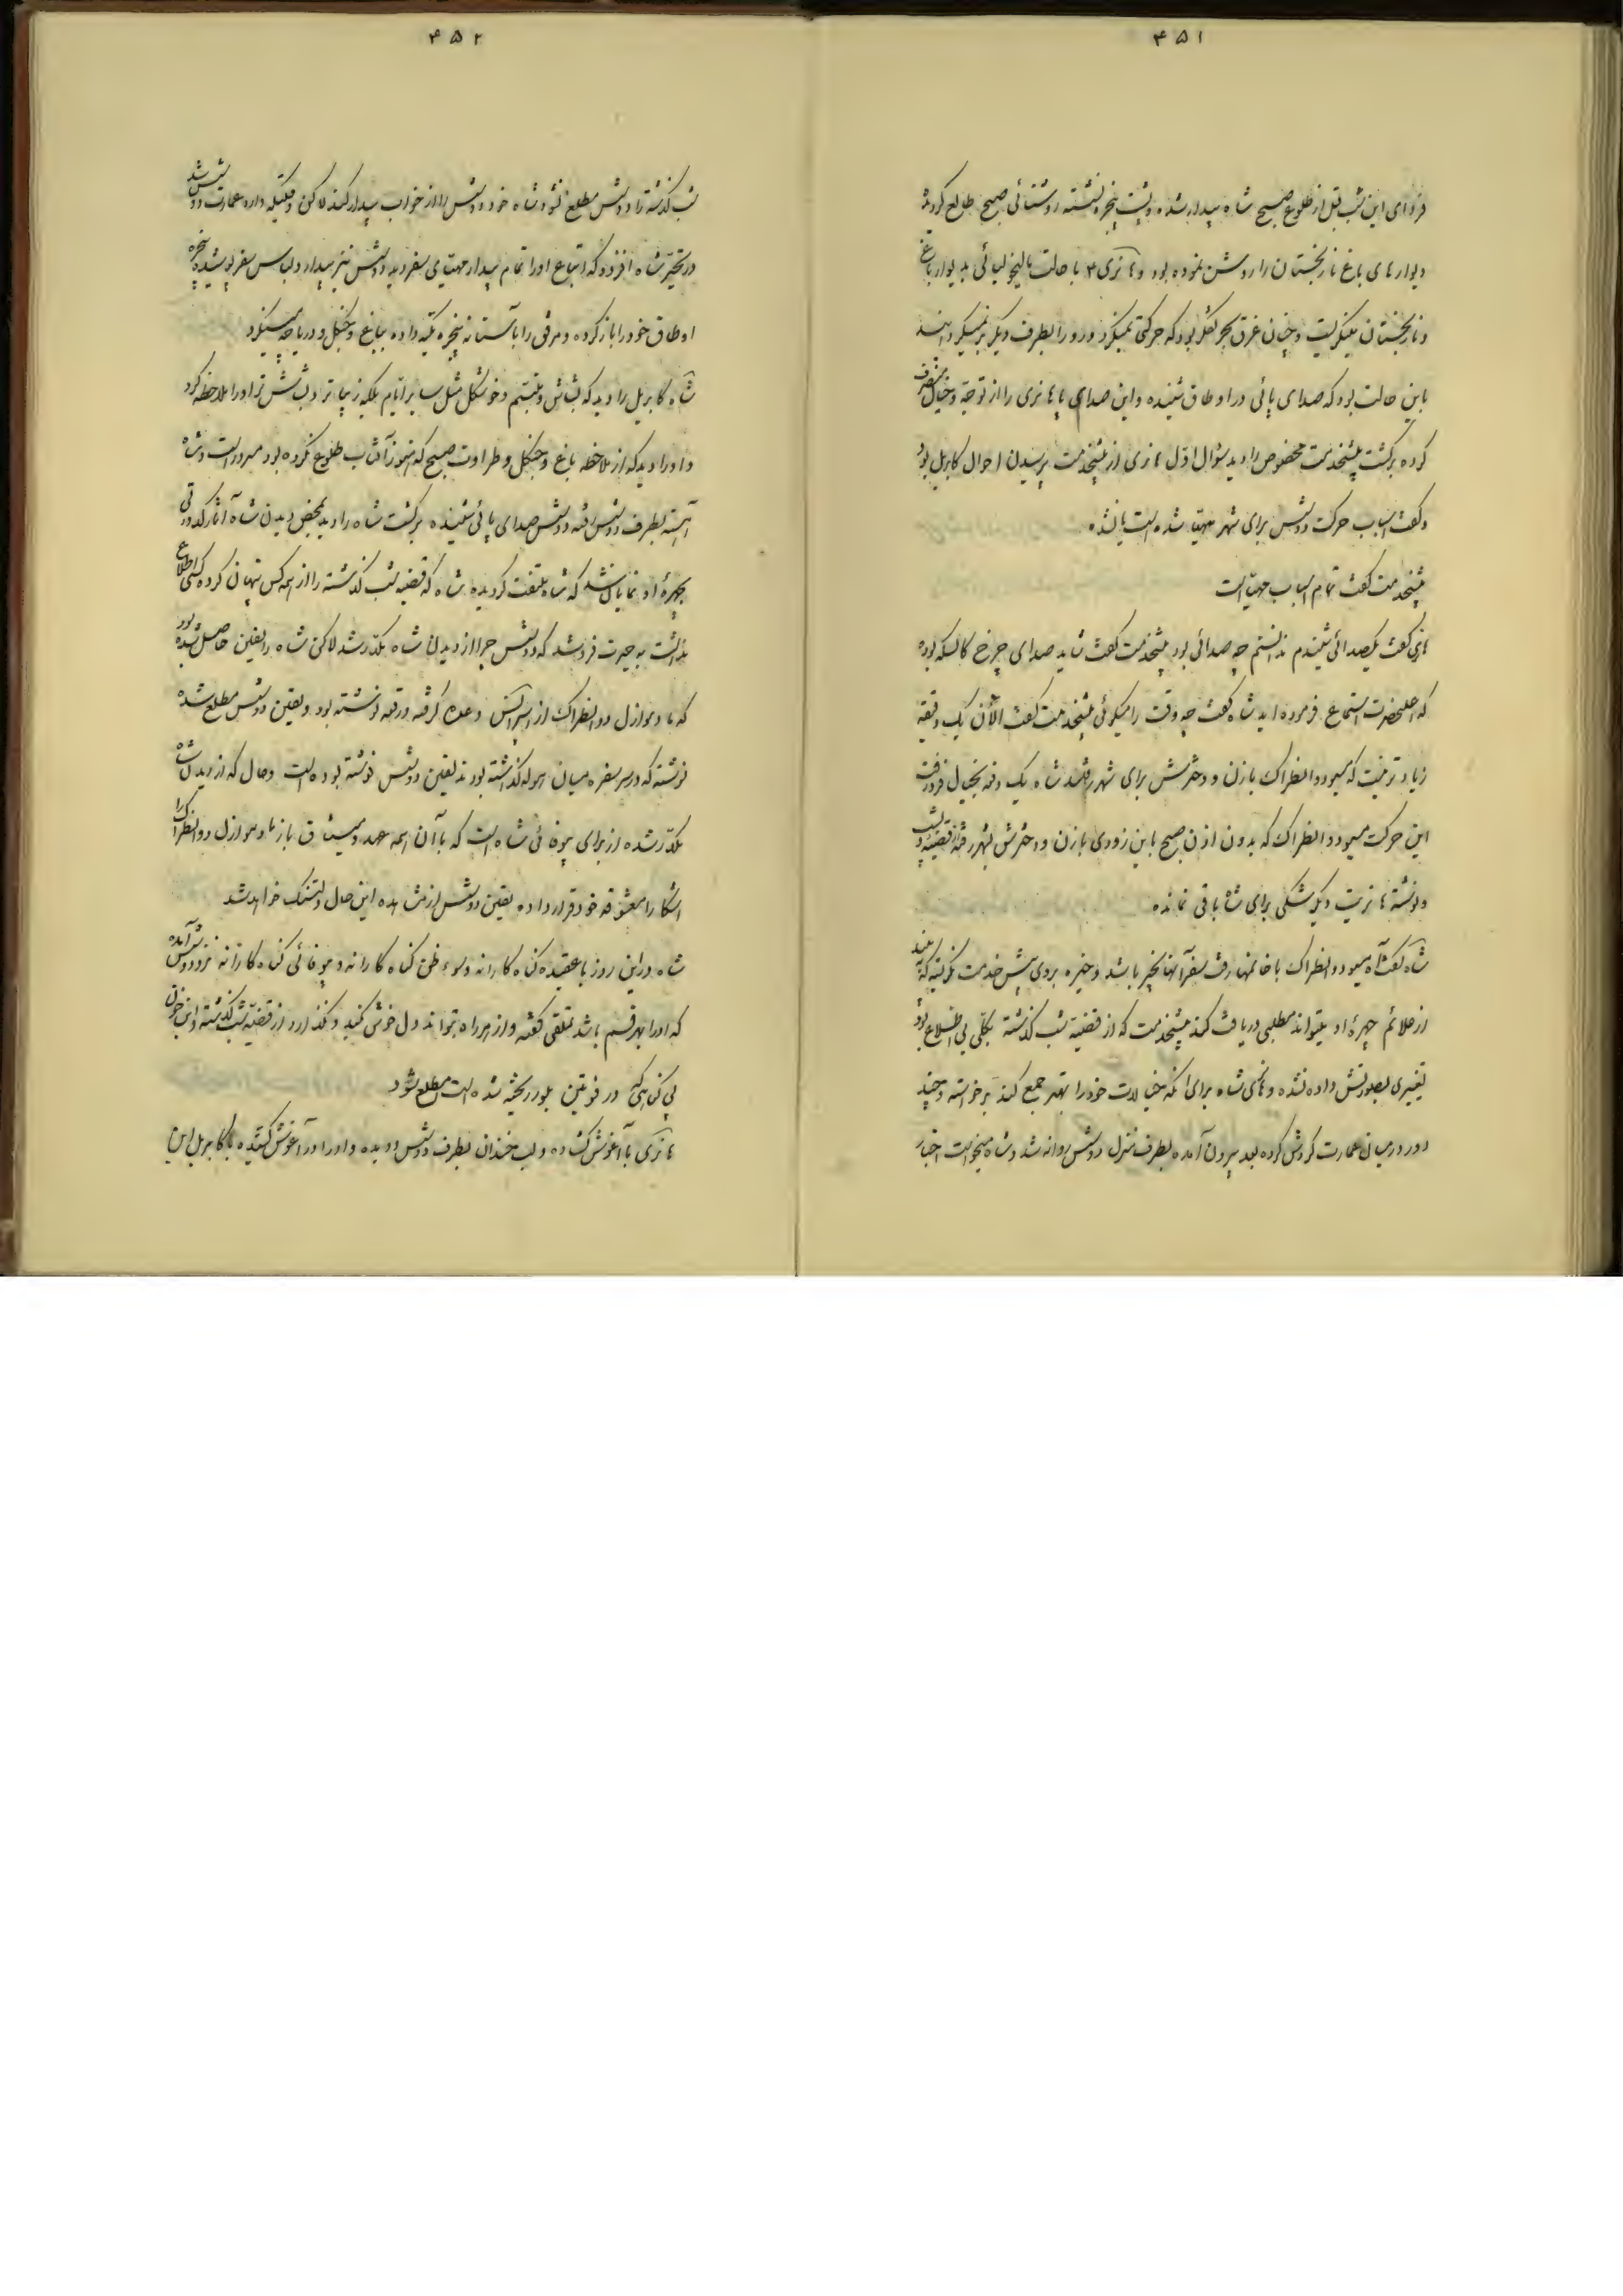 ۴۵۱
فردای این شب قبل از طلوع صبح شاه بیدار شده و پشت پنجره نشسته روشنائی صبح طالع گردیده
دیوارهای باغ نارنجستان را روشن نموده بود و هانری ۴ با حالت مالیخولیائی بدیوار باغ
و نارنجستان مینگریست و چنان غرق بحر تفکر بود که حرکتی نمیکرد و رو را بطرف دیگر برنمیگردانید
باین حالت بود که صدای پائی در اوطاق شنیده و این صدای پا هانری را از توجه و خیال منصرف
کرده برگشت پیشخدمت مخصوص را دید سؤال اول هانری از پیشخدمت پرسیدن احوال کابریل بود
و گفت اسباب حرکت دوشس برای شهر مهیا شده است یا نشده
پیشخدمت گفت تمام اسباب مهیا است
هانری گفت یکصدائی شنیدم ندانستم چه صدائی بود پیشخدمت گفت شاید صدای چرخ کالسکه بوده
که اعلیحضرت استماع فرموده اید شاه گفت چه وقت را میگوئی پیشخدمت گفت الآن یک دقیقه
زیادتر نیست که مسیو دوانطراک با زن و دخترش برای شهر رفتند شاه یک دفعه بخیال فرو رفت
این حرکت مسیو دوانطراک که بدون اذن صبح باین زودی با زن و دخترش بشهر رفته از قضیه دیشب
و نوشته هانریت دیگر شکی برای شاه باقی نمانده
شاه گفت آه مسیو دوانطراک با خانمها رفت سفر آنها بخیر باشد و خیره بروی پیش خدمت نگریسته که ببیند
از علائم چهره او میتواند مطلبی دریافت کند پیشخدمت که از قضیه شب گذشته بکلی بی اطلاع بود
تغییری بصورتش داده نشده و هانری شاه برای آنکه خیالات خود را بهتر جمع کند برخواسته و چند
دور در میان عمارت گردش کرده بعد بیرون آمده بطرف منزل دوشس روانه شد و شاه میخواست اخبار
۴۵۲
شب گذشته را دوشس مطلع نشود شاه خود دوشس را از خواب بیدار کند لاکن وقتیکه وارد عمارت دوشس شد
در تحیر شاه افزود که اتباع او را تمام بیدار مهیای سفر دید دوشس نیز بیدار و لباس سفر پوشیده پنجره
اوطاق خود را باز کرده و مرفق را بآستانه پنجره تکیه داده بباغ و جنگل و دریاچه مینگرد
شاه کابریل را دید که بشاش و متبسم و خوشگل مثل سایر ایام بلکه زیباتر و بشاش تر او را ملاحظه کرد
و او را دید که از ملاحظه باغ و جنگل و طراوت صبح که هنوز آفتاب طلوع نکرده بود مسرور است و شاه
آهسته بطرف دوشس رفته دوشس صدای پائی شنیده برگشت شاه را دید بمحض دیدن شاه آثار کدورتی
بچهره او نمایان شد که شاه ملتفت گردیده شاه که قضیه شب گذشته را از همه کس پنهان کرده کسی اطلاع
نداشت بحیرت فرو شد که دوشس چرا از دیدن شاه مکدر شد لاکن شاه را یقین حاصل شده بود
که مادموازل دوانطراک از وعده گرفته ورقه نوشته بود و یقین دوشس مطلع شده
نوشته که در سر سفره میان گذاشته بودند یقین دوشس نوشته بوده است و حال که از دیدن شاه
مکدر شده از برای بیوفائی شاه است که با آن همه عهد و میثاق باز مادموازل دوانطراک را
آشکارا معشوقه خود قرار داده یقین دوشس از مشاهده این حال دلتنگ خواهد شد
شاه در این روز با عقیده گناه کارانه و سوء ظن گناه کارانه و بیوفائی گناه کارانه نزد دوشس آمده
که او را بهر قسم باشد تملقی گفته و از هر راه بتواند دل خوشی کند و نگذارد از قضیه شب گذشته و این خون
بی گناهی که در فونتین بلو ریخته شده است مطلع شود
هانری با آغوش گشاده و لب خندان بطرف دوشس دویده و او را در آغوش کشیده با کابریل این